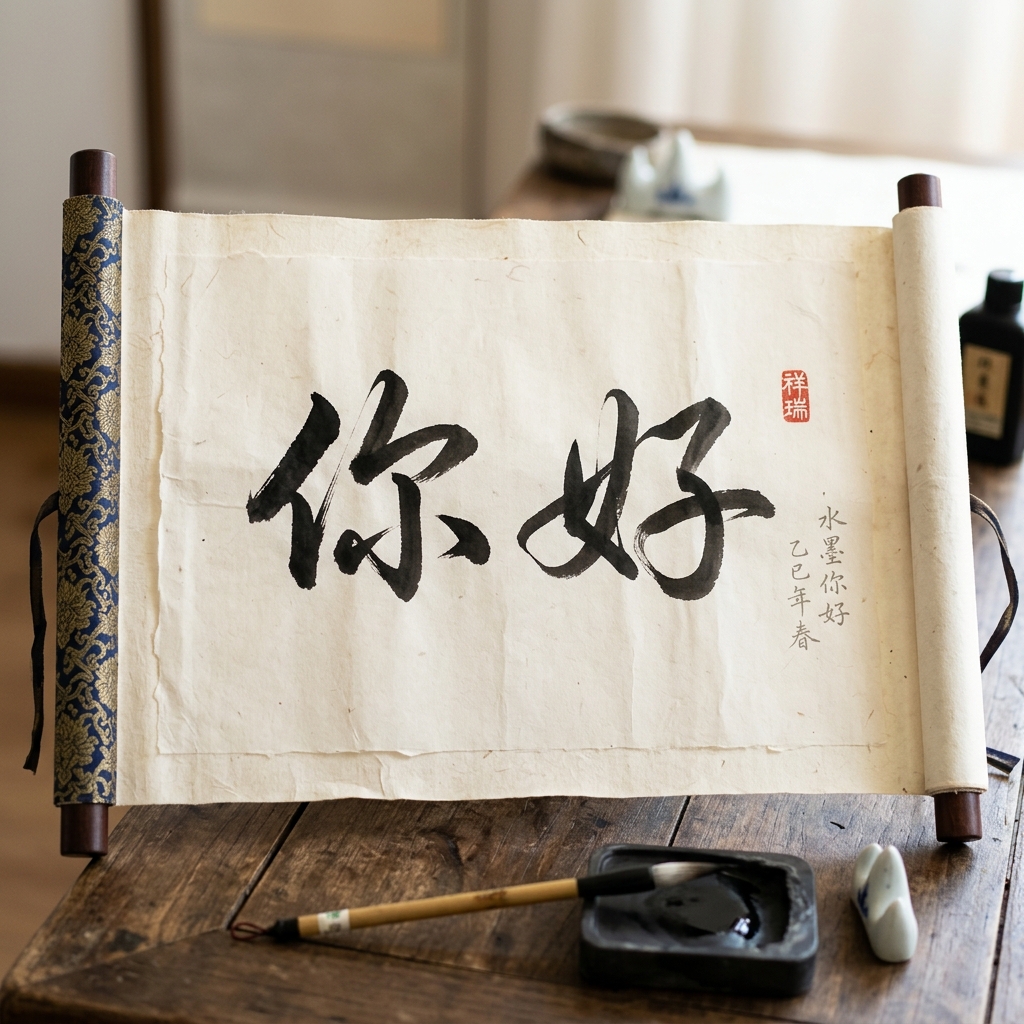 你好
祥瑞
水墨你好
乙巳年春